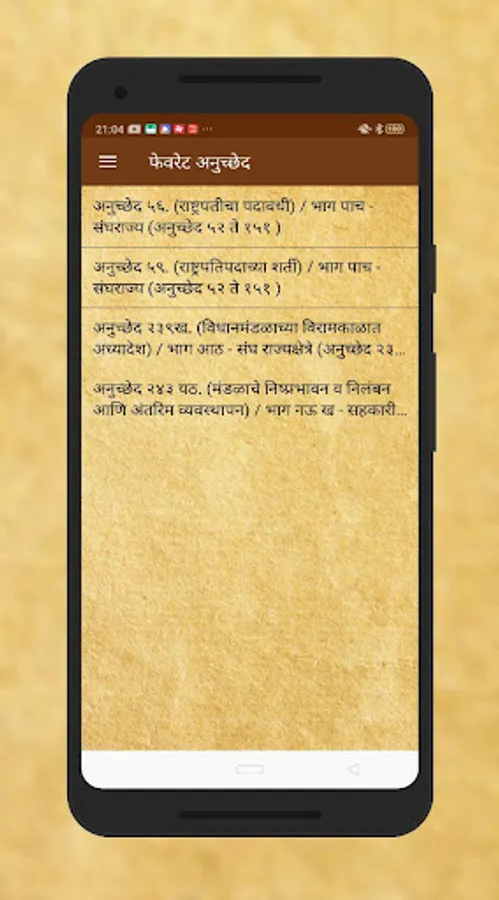 21:04
फेवरेट अनुच्छेद
अनुच्छेद ५६. (राष्ट्रपतीचा पदावधी) / भाग पाच -
संघराज्य (अनुच्छेद ५२ ते १५१ )
अनुच्छेद ५९. (राष्ट्रपतिपदाच्या शर्ती) / भाग पाच -
संघराज्य (अनुच्छेद ५२ ते १५१ )
अनुच्छेद २३९ख. (विधानमंडळाच्या विरामकाळात
अध्यादेश) / भाग आठ - संघ राज्यक्षेत्रे (अनुच्छेद २३...
अनुच्छेद २४३ यठ. (मंडळाचे निष्प्रभावन व निलंबन
आणि अंतरिम व्यवस्थापन) / भाग नऊ ख - सहकारी...